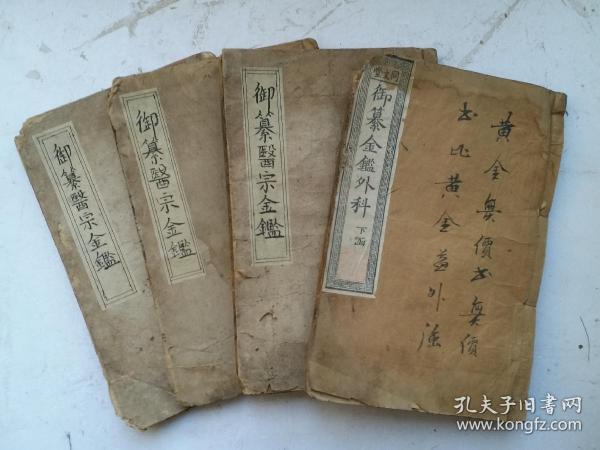 御纂醫宗金鑑
御纂醫宗金鑑
御纂醫宗金鑑
同文堂
御纂金鑑外科 下
黄金無價书無價
书比黄金益外強
孔夫子旧书网
www.kongfz.com